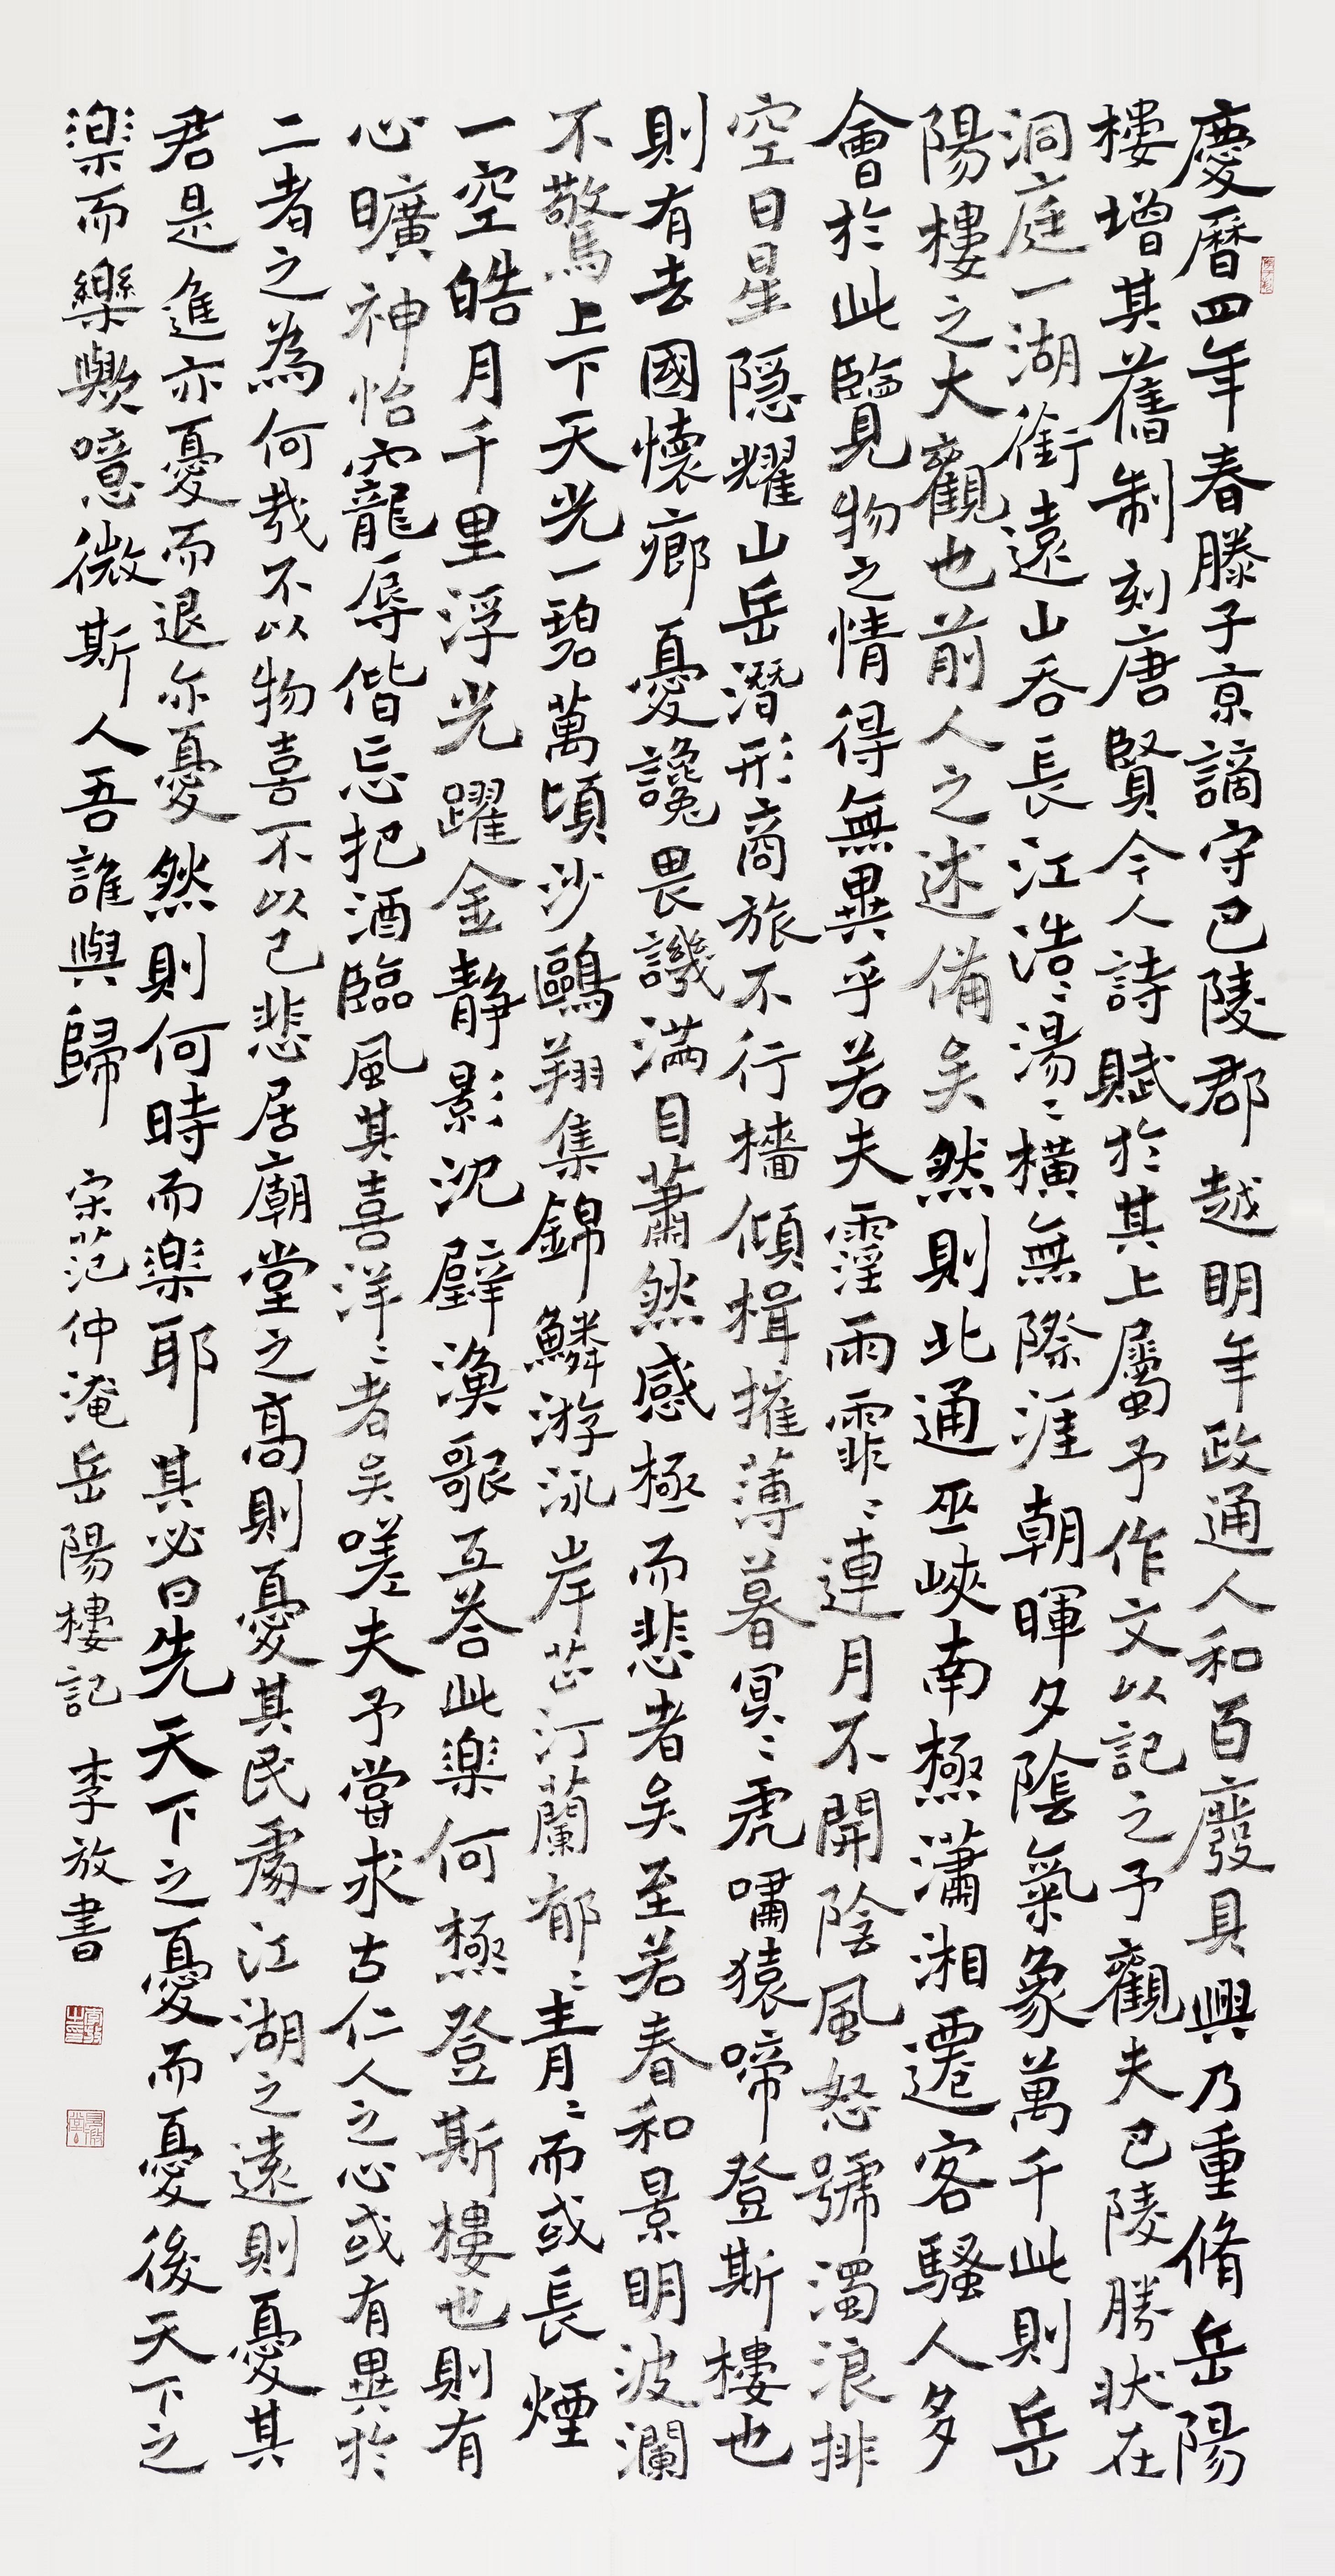 慶曆四年春滕子京謫守巴陵郡越明年政通人和百廢具興乃重脩岳陽
樓增其舊制刻唐賢今人詩賦於其上屬予作文以記之予觀夫巴陵勝狀在
洞庭一湖銜遠山吞長江浩〻湯〻橫無際涯朝暉夕陰氣象萬千此則岳
陽樓之大觀也前人之述備矣然則北通巫峽南極瀟湘遷客騷人多
會於此覽物之情得無異乎若夫霪雨霏〻連月不開陰風怒號濁浪排
空日星隱耀山岳潛形商旅不行檣傾楫摧薄暮冥〻虎嘯猿啼登斯樓也
則有去國懷鄉憂讒畏譏滿目蕭然感極而悲者矣至若春和景明波瀾
不驚上下天光一碧萬頃沙鷗翔集錦鱗游泳岸芷汀蘭郁〻青〻而或長煙
一空皓月千里浮光躍金静影沈璧漁歌互荅此楽何極登斯樓也則有
心曠神怡寵辱偕忘把酒臨風其喜洋〻者矣嗟夫予嘗求古仁人之心或有異於
二者之為何哉不以物喜不以己悲居廟堂之高則憂其民處江湖之遠則憂其
君是進亦憂而退亦憂然則何時而楽耶其必曰先天下之憂而憂後天下之
楽而樂歟噫微斯人吾誰與歸 宋范仲淹岳陽樓記 李放書